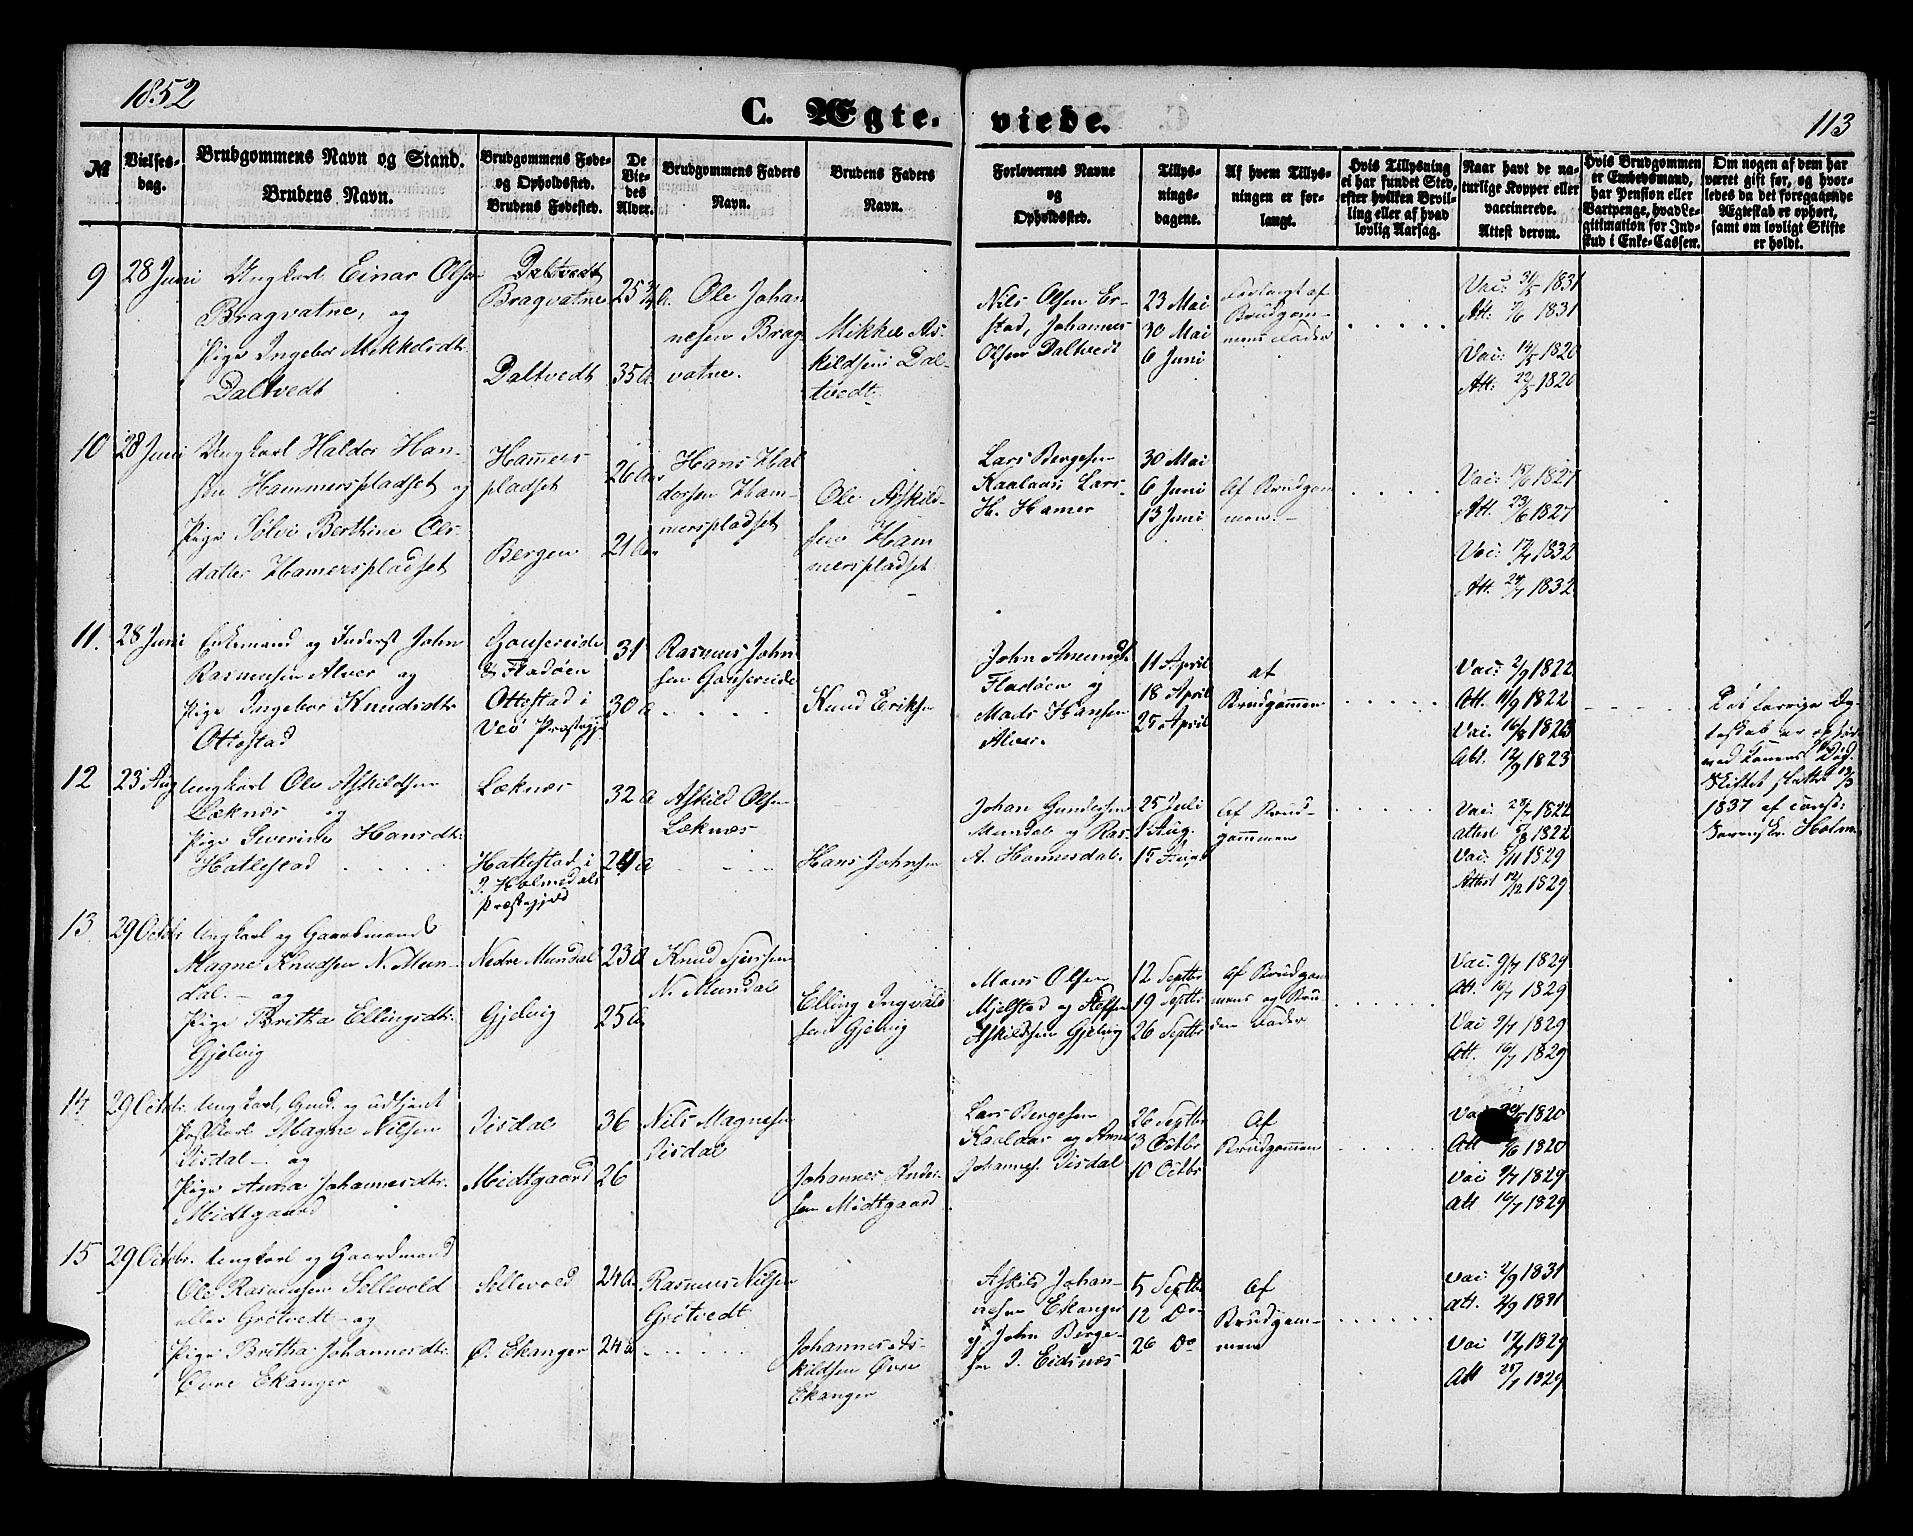 1852
C. Ægte-
viede.
113
№
Vielses-
dag.
Brudgommens Navn og Stand.
Brudens Navn.
Brudgommens Føde-
og Opholdssted.
Brudens Fødested.
De
Vie-
des
Alder.
Brudgommens Faders
Navn.
Brudens Faders
Navn.
Forlovernes Navne
og
Opholdssted.
Tillys-
nings-
dagene.
Af hvem Tillys-
ningen er for-
langt.
Hvis Tillysning
ei har fundet Sted,
efter hvilken Bevil-
ling eller af hvad
lovlig Aarsag.
Naar havt de na-
turlige Kopper eller
vaccinerede.
Attest derom.
Hvis Brudgommen
er Embedsmand,
har Pension eller
Vartpenge, hvad Le-
gitimation for Ind-
skud i Enke-Cassen.
Om nogen af dem har
været gift før, og hvor-
ledes da det foregaaende
Ægteskab er ophørt,
samt om lovligt Skifte
er holdt.
9
28 Juni
Ungkarl Einar Olsen
Bragvatne, og
Pige Ingebor Mikkelsdtr.
Daltvedt
Daltvedt
Bragvatne
Daltvedt
25 3/4 A.
35 A.
Ole Johan
nesen Brag
vatne.
Mikkel As-
kildsen Dal-
tvedt.
Nils Olsen Er-
stad, Johannes
Olsen Daltvedt
23 Mai
30 Mai
6 Juni
Forlangt af
Brudgom-
mens Fader
Vac: 31/5 1831
Att: 7/6 1831
Vac: 14/5 1820
Att: 22/5 1820
10
28 Juni
Ungkarl Halder Han-
sen Hammerspladset og
Pige Sølvi Berthine Ols-
datter Hamerspladset
Hamers
pladset
Bergen
26 Aar
21 Aar
Hans Hal
dorsen Ham-
merspladset
Ole Askild-
sen Ham
merspladset
Lars Bergesen
Kaalaas, Lars
H. Hamer
30 Mai
6 Juni
13 Juni
Af Brudgom
men.
Vac: 15/6 1827
Att. 23/6 1827
Vac: 17/7 1832
Att. 24/7 1832
11.
28 Juni
Enkemand og Inderst John
Rasmussen Alver og
Pige Ingebor Knudsdtr
Ottestad
Gausereide
& Fladøen
Ottestad i
Veø Præstegj.
31
30 A
Rasmus John
sen Gausereide
Knud Eriksen
John Amunds.
Fladøen og
Mads Hansen
Alver.
11 April
18 April
25 April
af
Brudgommen
Vac: 2/9 1822
Att. 11/9 1822
Vac: 16/8 1823
Att. 12/9 1823
Det forrige Æg
teskab er ophørt
med Konens Død.
Skiftet sluttet 13/3
1837 af const:
Sorenskr. Holm
12
23 Aug
Ungkarl Ole Askildsen
Læknes og
Pige Severine Hansdtr.
Hatlestad
Læknes
Hatlestad i
I. Holmedals
Præstegjeld
32 A
24 A
Askild Olsen
Læknes
Hans Johnsen
Johan Gundersen
Mundal og Ras.
A. Hannesdal.
25 Juli
1 Aug.
15 Aug.
Af Brud-
gommen
Vac: 28/7 1822
Attest 5/8 1822
Vac: 5/11 1829
Attest 12/12 1829
13.
29 Octbr.
Ungkarl og Gaardmand
Magne Knudsen N. Mun-
dal. og
Pige Britha Ellingsdtr.
Gjelvig
Nedre Mundal
Gjelvig
23 A
25 A
Knud Iversen
N. Mundal
Elling Ingvald
sen Gjelvig
Mons Olsen
Mjelstad og Steffen
Askildsen Gjelvig
12 Septbr
19 Septbr
26 Septbr
Af Brudgom
mens og Bru
dens Fader
Vac. 9/7 1829
Att. 16/7 1829
Vac 9/7 1829
Att. 16/7 1829
14.
29 Octbr.
Ungkarl, Gmd. og udtjent
Postkarl Magne Nilsen
Isdal og
Pige Anna Johannesdtr.
Midtgaard
Isdal
Midtgaard
36
26
Nils Magnesen
Isdal
Johannes Ander-
sen Midtgaard
Lars Bergesen
Kaalaas og Anne
Johannes. Isdal
26 Septbr
3 Octbr
10 Octbr
Af
Brudgommen
Vac 1820
Att 1820
Vac 9/7 1829
Att 16/7 1829
15
29 Octbr.
Ungkarl og Gaardmand
Ole Rasmussen Sellevold
eller Grøtvedt og
Pige Britha Johannesdtr.
Øvre Ekanger
Sellevold
Ø. Ekanger
24 A.
24 A
Rasmus Nilsen
Grøtvedt
Johannes As-
kildsen Øvre
Ekanger
Askild Johan-
nesen Ekanger
og John Berge-
sen I. Eidsnes
5 Septbr
12 Do
26 Do
Af
Brudgom-
men
Vac 2/9 1831
Att. 2/9 1831
Vac 17/7 1829
Att 25/7 1829